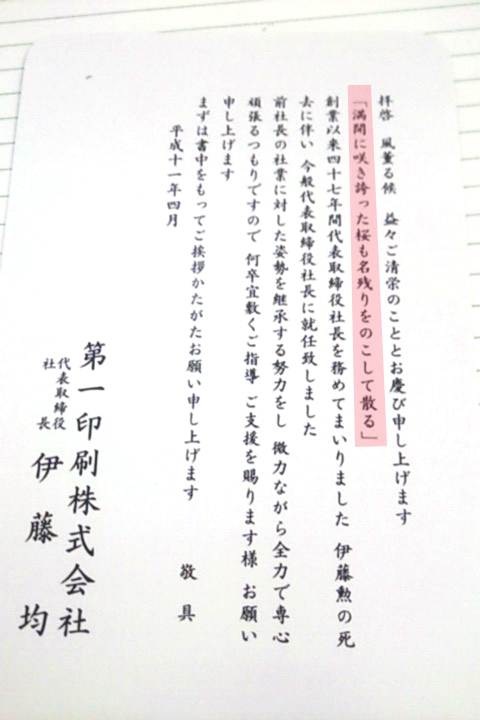 拝啓 風薫る候 益々ご清栄のこととお慶び申し上げます
「満開に咲き誇った桜も名残りをのこして散る」
創業以来四十七年間代表取締役社長を務めてまいりました 伊藤勲の死
去に伴い 今般代表取締役社長に就任致しました
前社長の社業に対した姿勢を継承する努力をし 微力ながら全力で専心
頑張るつもりですので 何卒宜敷くご指導 ご支援を賜ります様 お願い
申し上げます
まずは書中をもってご挨拶かたがたお願い申し上げます
敬具
平成十一年四月
第一印刷株式会社
代表取締役
社長
伊藤 均